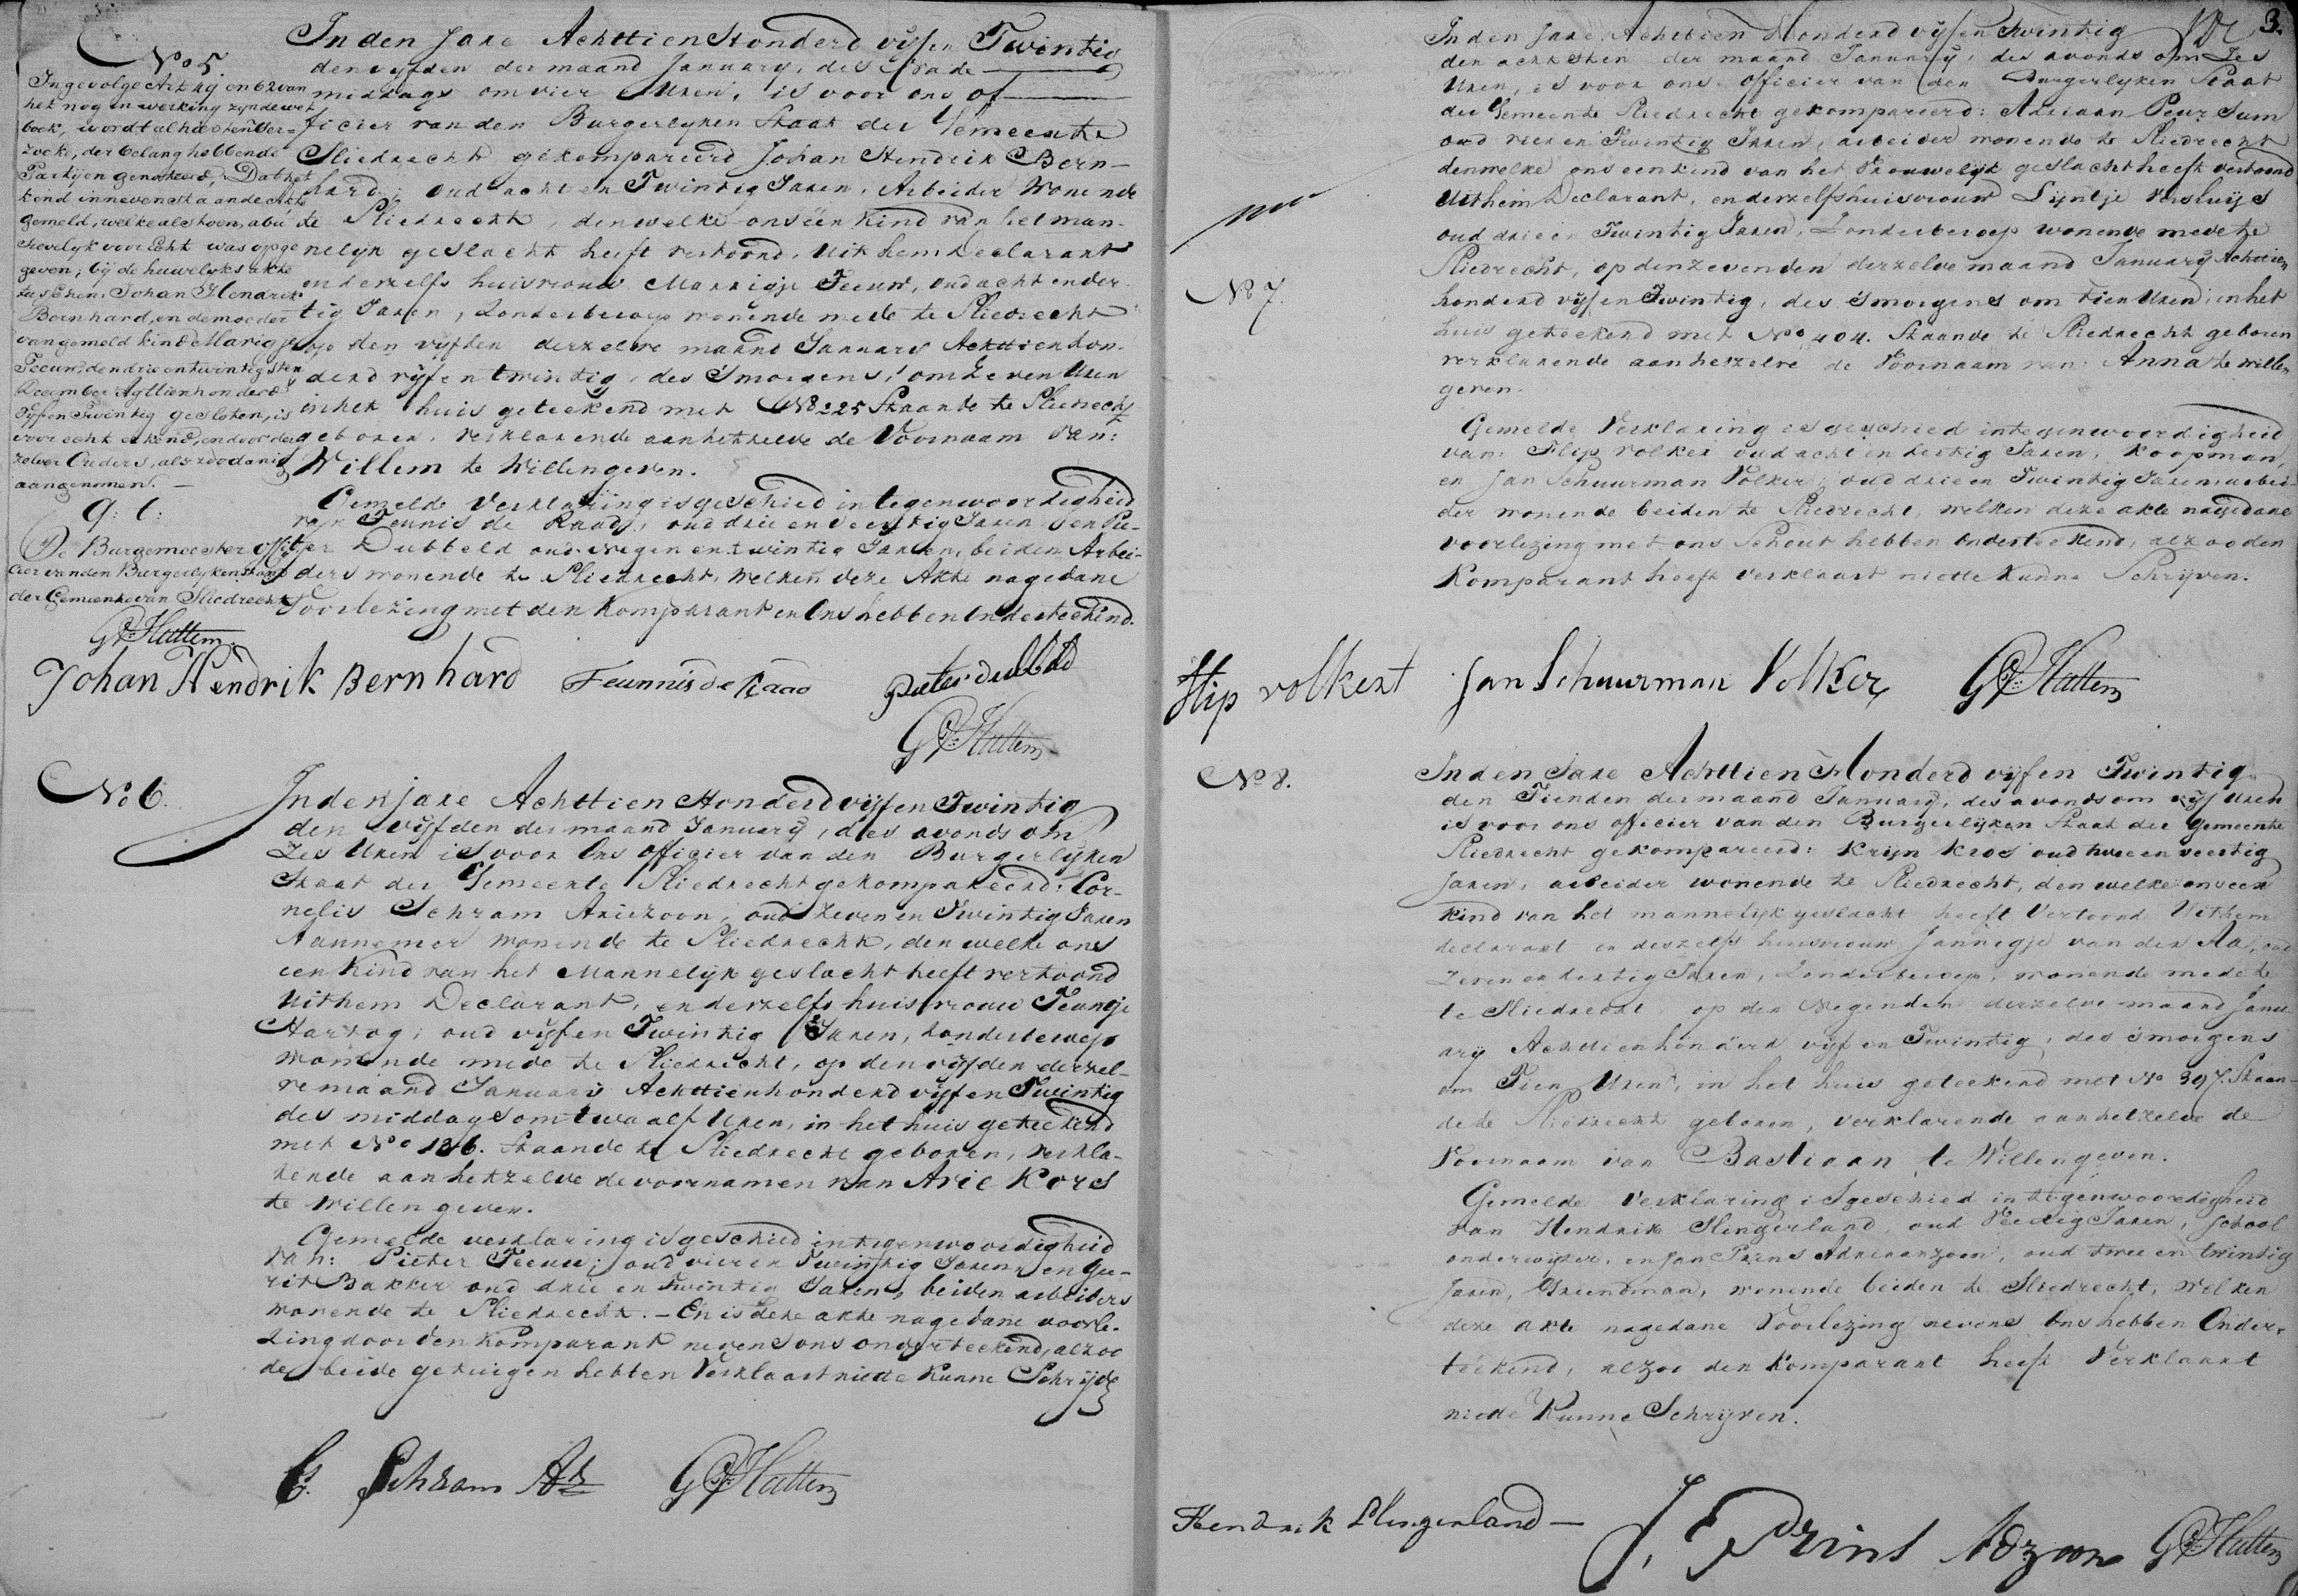 No 5.
Ingevolge Art
het nog in werking zynde wet
boek, wordt alhier ten Ver-
zoeke, der belanghebbende
Partijen genoteerd, Dat het
kind innevenstaande akte
gemeld, welke als toen, abu
sievelyk voor Echt was opge
geven; bij de huwelyks akte
tusschen Johan Hendrik
Bernhard, en de moeder
van gemeld kind Marigje
Teeuw, den drie en twintigsten
December Agttienhonderd
Vyf en Twintig gesloten, is
voor echt erkend, en door de
zelver Ouders, als zoodanig
aangenomen. —
De Burgemeester Offi
cier van den Burgerlyken stand
der Gemeente van Sliedrecht
In den Jare Achttien Honderd vyf en Twintig
den vyfden der maand January, des Na de
middags om vier Uren, is voor ons of
ficier van den Burgerlyken Staat der Gemeente
Sliedrecht gekompareerd Johan Hendrik Bern-
hard; oud acht en Twintig Jaren, Arbeider Wonende
te Sliedrecht, denwelke ons één Kind van het man-
nelyk geslacht heeft vertoond, Uit hem Declarant
en derzelfs huisvrouw Marrigje Teeuw, oud acht en der-
tig Jaren, Zonder beroep wonende mede te Sliedrecht
op den vyfden derzelve maand January Achttienhon-
derd vyf en twintig, des S'morgens, om Zeven Uren
in het huis geteekend met No 225 Staande te Sliedrecht
geboren, verklarende aan hetzelve de Voornaam van:
Willem te Willen geven.
Gemelde Verklaring is geschied in tegenwoordigheid
van Teunis de Raad, oud drie en veertig Jaren en Pie-
ter Dubbeld oud negen en twintig Jaren, beiden Arbei-
ders wonende te Sliedrecht, Welken deze Akte nagedane
Voorlezing met den Komparant en Ons hebben Onderteekend.
Johan Hendrik Bernhard Teunnis de Raad Pieter dubbeld
No 6.
In den jare Achttien Honderd vyf en Twintig
den vyfden der maand January, des avonds om
Zes Uren is voor Ons Officier van den Burgerlyken
Staat der Gemeente Sliedrecht gekompareerd: Cor-
nelis Schram Ariezoon, oud Zeven en Twintig Jaren
Aannemer wonende te Sliedrecht, den welke ons
een Kind van het Mannelyk geslacht heeft vertoond
Uit hem Declarant, en derzelfs huisvrouw Teuntje
Hartog, oud vyf en Twintig Jaren, Zonder beroep
Wonende mede te Sliedrecht, op den vyfden derzel-
ve maand January Achttienhonderd vyf en Twintig
des middags om twaalf Uren, in het huis geteekend
met No 136. Staande te Sliedrecht geboren, Verkla-
rende aan hetzelve de voornamen van Arie Kors
te Willen geven.
Gemelde verklaring is geschied in tegenwoordigheid
van: Pieter Teeuw; oud vier en Twintig Jaren, en Ger-
rit Bakker oud drie en Twintig Jaren, beiden arbeiders
wonende te Sliedrecht. — En is deze akte nagedane voorle-
zing door den Komparant nevens ons onderteekend, alzoo
de beide getuigen hebten Verklaart niette Kunne Schrijve
C. Schram Az
3.
No 7.
In den Jare Achttien Honderd vyf en Twintig
den achtsten der maand January, des avonds om Zes
Uren, is voor ons officier van den Burgerlyken Staat
der Gemeente Sliedrecht gekompareerd: Adriaan Peur Sum
oud vier en Twintig Jaren, arbeider wonende te Sliedrecht
denwelke ons een kind van het Vrouwelyk geslacht heeft vertoond
Uithem Declarant, en derzelfs huisvrouw Lijntje Versluijs
oud drie en Twintig Jaren, Zonder beroep wonende mede te
Sliedrecht, op den zevenden derzelve maand January Achttien
honderd vyf en Twintig, des s'morgens om tien Uren, in het
huis geteekend met No 404. Staande te Sliedrecht geboren
verklarende aan hetzelve de Voornaam van: Anna te willen
geven.
Gemelde Verklaring is geschied in tegenwoordigheid
van: Flip Volker oud acht en dertig Jaren, Koopman,
en Jan Schuurman Volker, oud drie en Twintig Jaren arbei-
der wonende beiden te Sliedrecht, welken deze akte nagedane
voorlezing met ons Schout hebben Onderteekend, alzoo den
Komparant heeft verklaart niette Kunne Schrijven.
flip volkert Jan Schuurman Volker
No 8.
In den Jare Achttien Honderd vijf en Twintig
den Tienden der maand January, des avonds om vyf Uren
is voor ons officier van den Burgerlijken Staat der Gemeente
Sliedrecht gekompareerd: Krijn Kros oud twee en veertig
Jaren, arbeider wonende te Sliedrecht, den welke ons een
Kind van het mannelijk geslacht heeft Vertoond Uithem
declarant en deszelfs huisvrouw Jannigje van der Aa, oud
Zeven en dertig Jaren, Zonder beroep, wonende mede te
te Sliedrecht op den Negenden derzelve maand Janu
ary Achttienhonderd vyf en Twintig, des s'morgens
om Tien Uren, in het huis geteekend met No 397. Staan-
de te Sliedrecht geboren, verklarende aan hetzelve de
Voornaam van Bastiaan te Willen geven.
Gemelde verklaring is geschied in tegenwoordigheid
van Hendrik Slingerland, oud Veertig Jaren, School
onderwijzer, en Jan Prins Adriaanzoon, oud twee en twintig
Jaren, Griendman, wonende beiden te Sliedrecht, Welken
deze akte nagedane Voorlezing nevens Ons hebben Onder-
teekend, alzoo den Komparant heeft Verklaart
niette Kunne Schrijven.
Hendrik Slingerland — J. Prins Adzoon